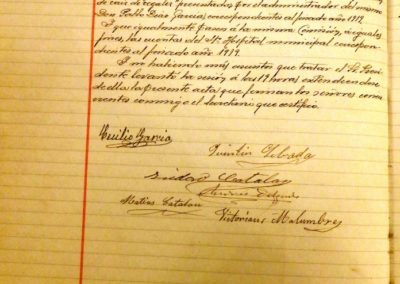 de caic de regales presentadas por el administrador del mismo
Don Pablo Cruz Garcia, correspondientes al pasado año 1912.
I que igualmente pasen á la misma Comision, á iguales
fines, las cuentas del Sto Hospital municipal correspon-
dientes al pasado año 1912.
I no habiendo más asuntos que tratar el Sr. Presi-
dente levantó la sesión á las 19 horas extendiéndose
de ella la presente acta que firman los señores concu-
rrentes conmigo el Secretario que certifico.
Cecilio Garcia
Quintin
Isidoro Catalan
Matias Catalan
Victoriano Malumbres